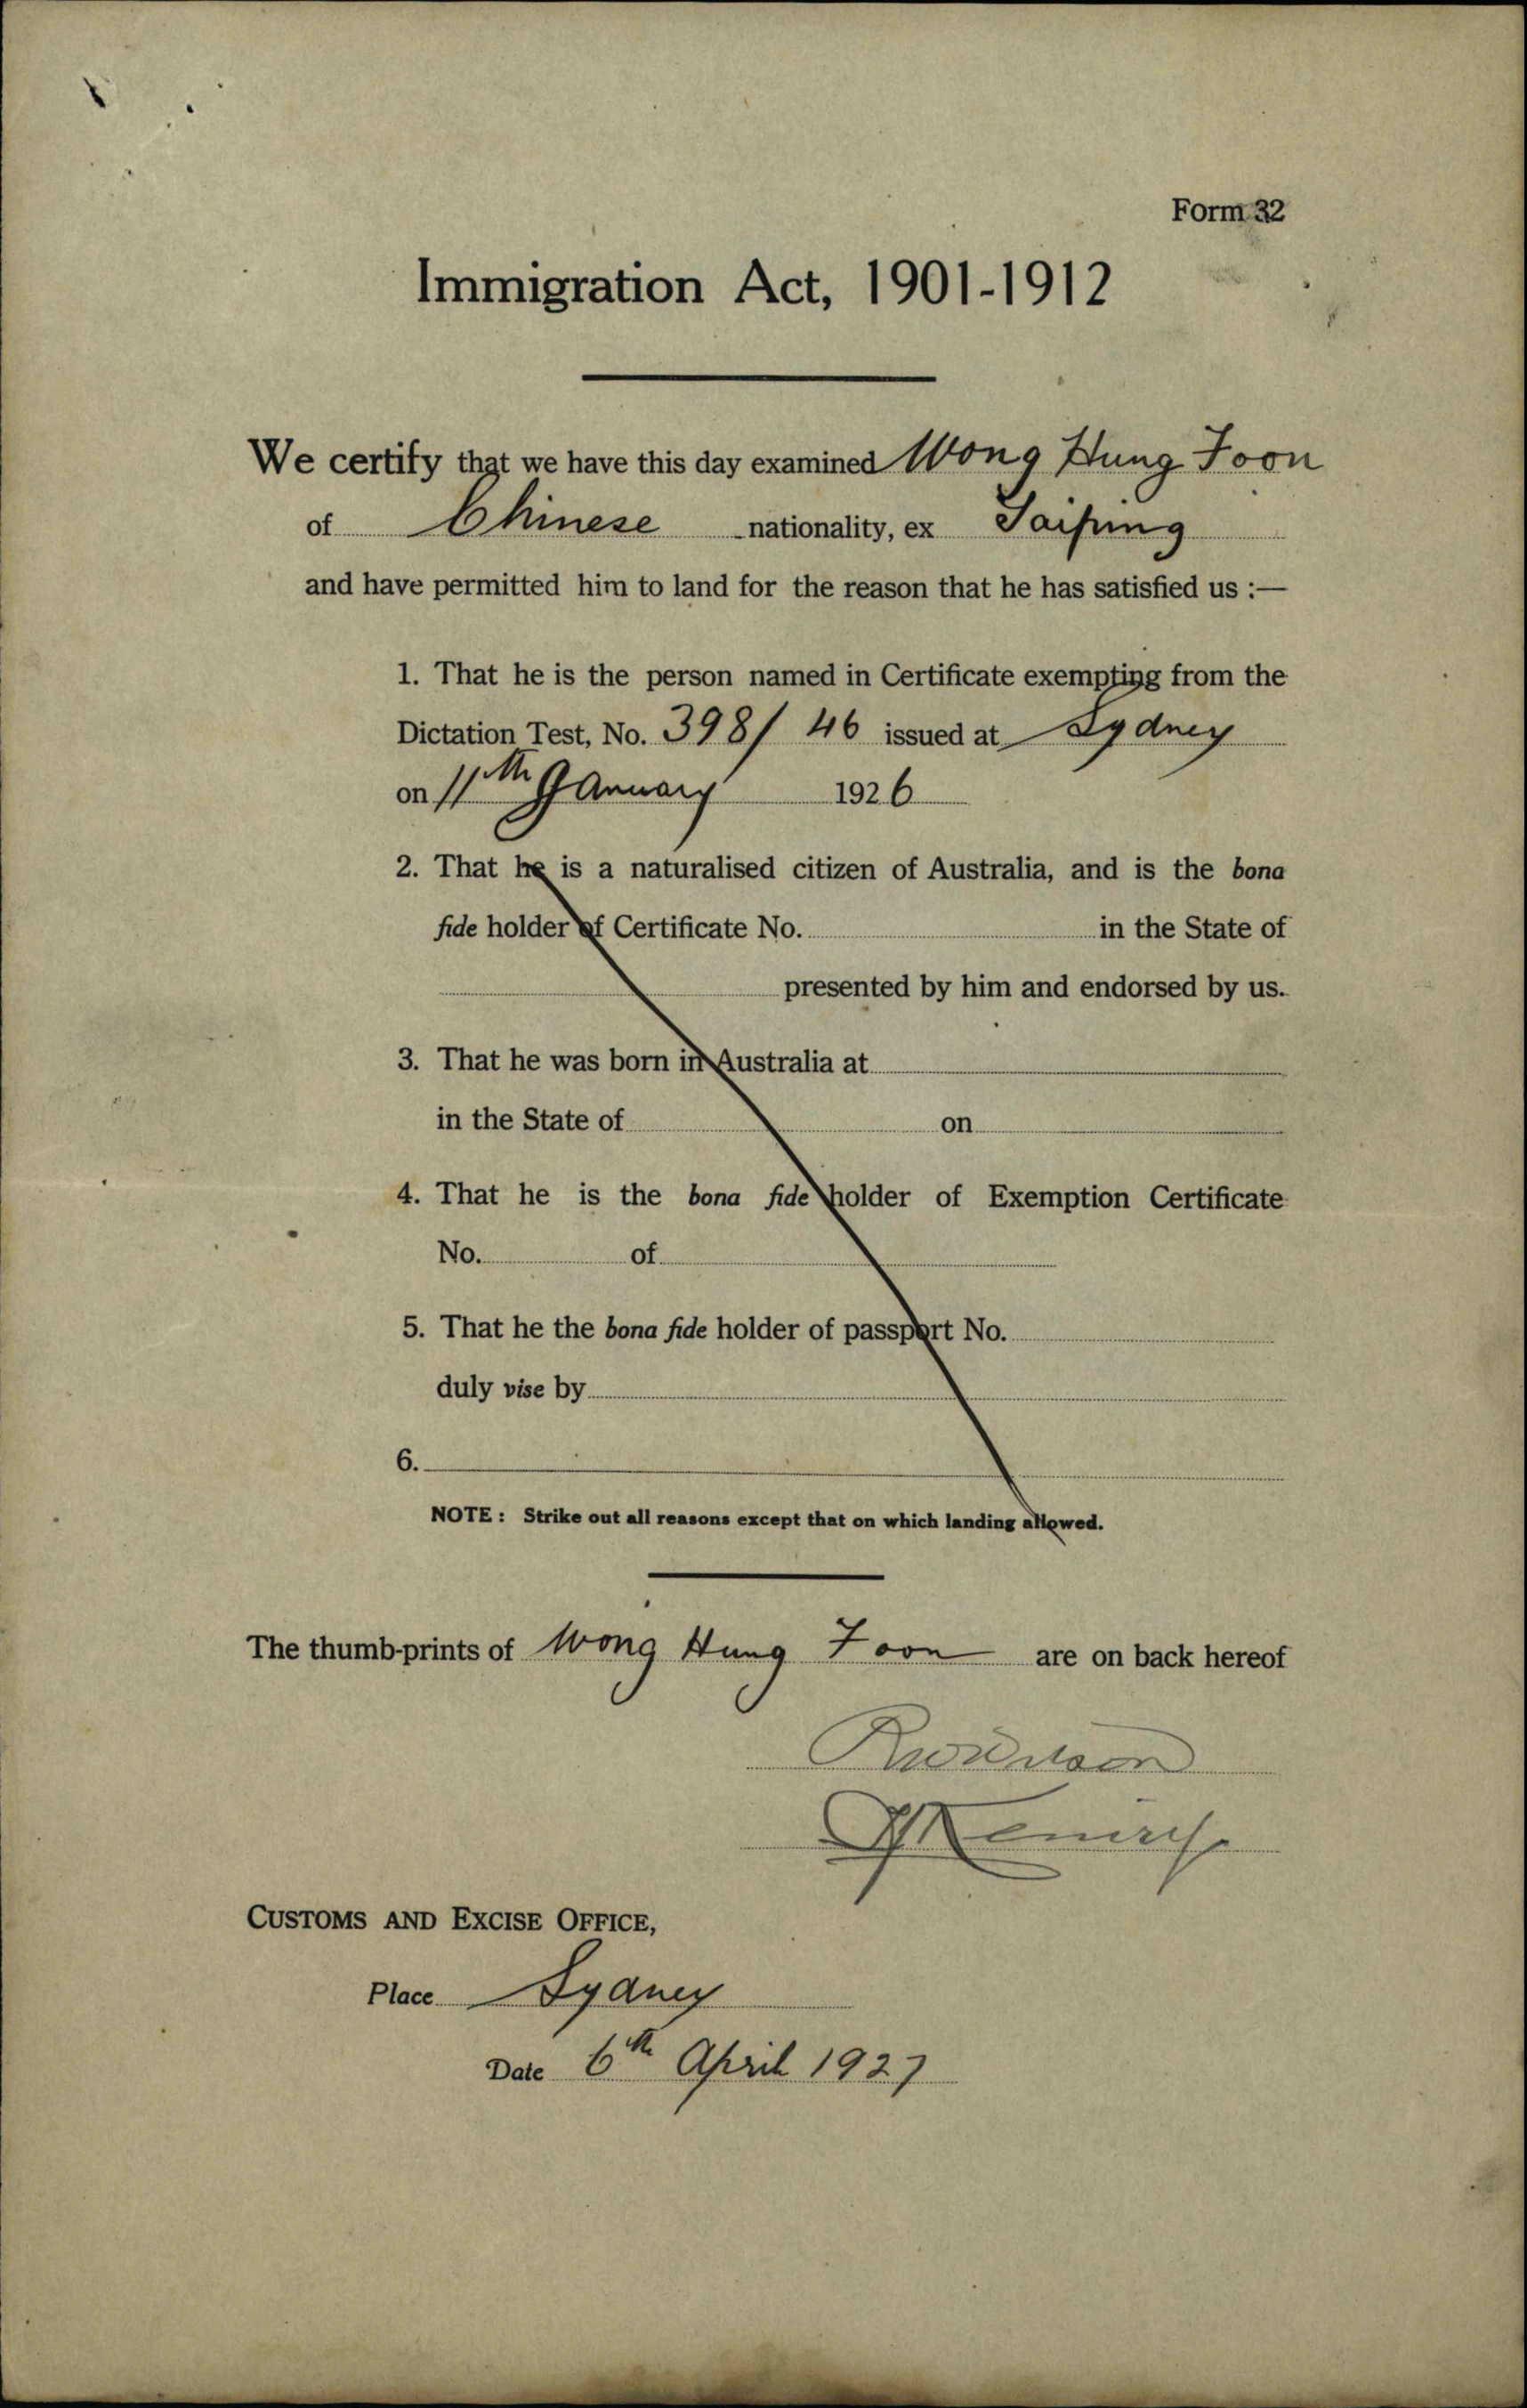 Form 32
Immigration Act, 1901-1912
We certify that we have this day examined Wong Hung Foon
of Chinese nationality, ex Taiping
and have permitted him to land for the reason that he has satisfied us :—
1. That he is the person named in Certificate exempting from the
Dictation Test, No. 398/ 46 issued at Sydney
on 11th January 1926
2. That he is a naturalised citizen of Australia, and is the bona
fide holder of Certificate No. in the State of
presented by him and endorsed by us.
3. That he was born in Australia at
in the State of on
4. That he is the bona fide holder of Exemption Certificate
No. of
5. That he the bona fide holder of passport No.
duly vise by
6.
NOTE : Strike out all reasons except that on which landing allowed.
The thumb-prints of Wong Hung Foon are on back hereof
CUSTOMS AND EXCISE OFFICE,
Place Sydney
Date 6th April 1927